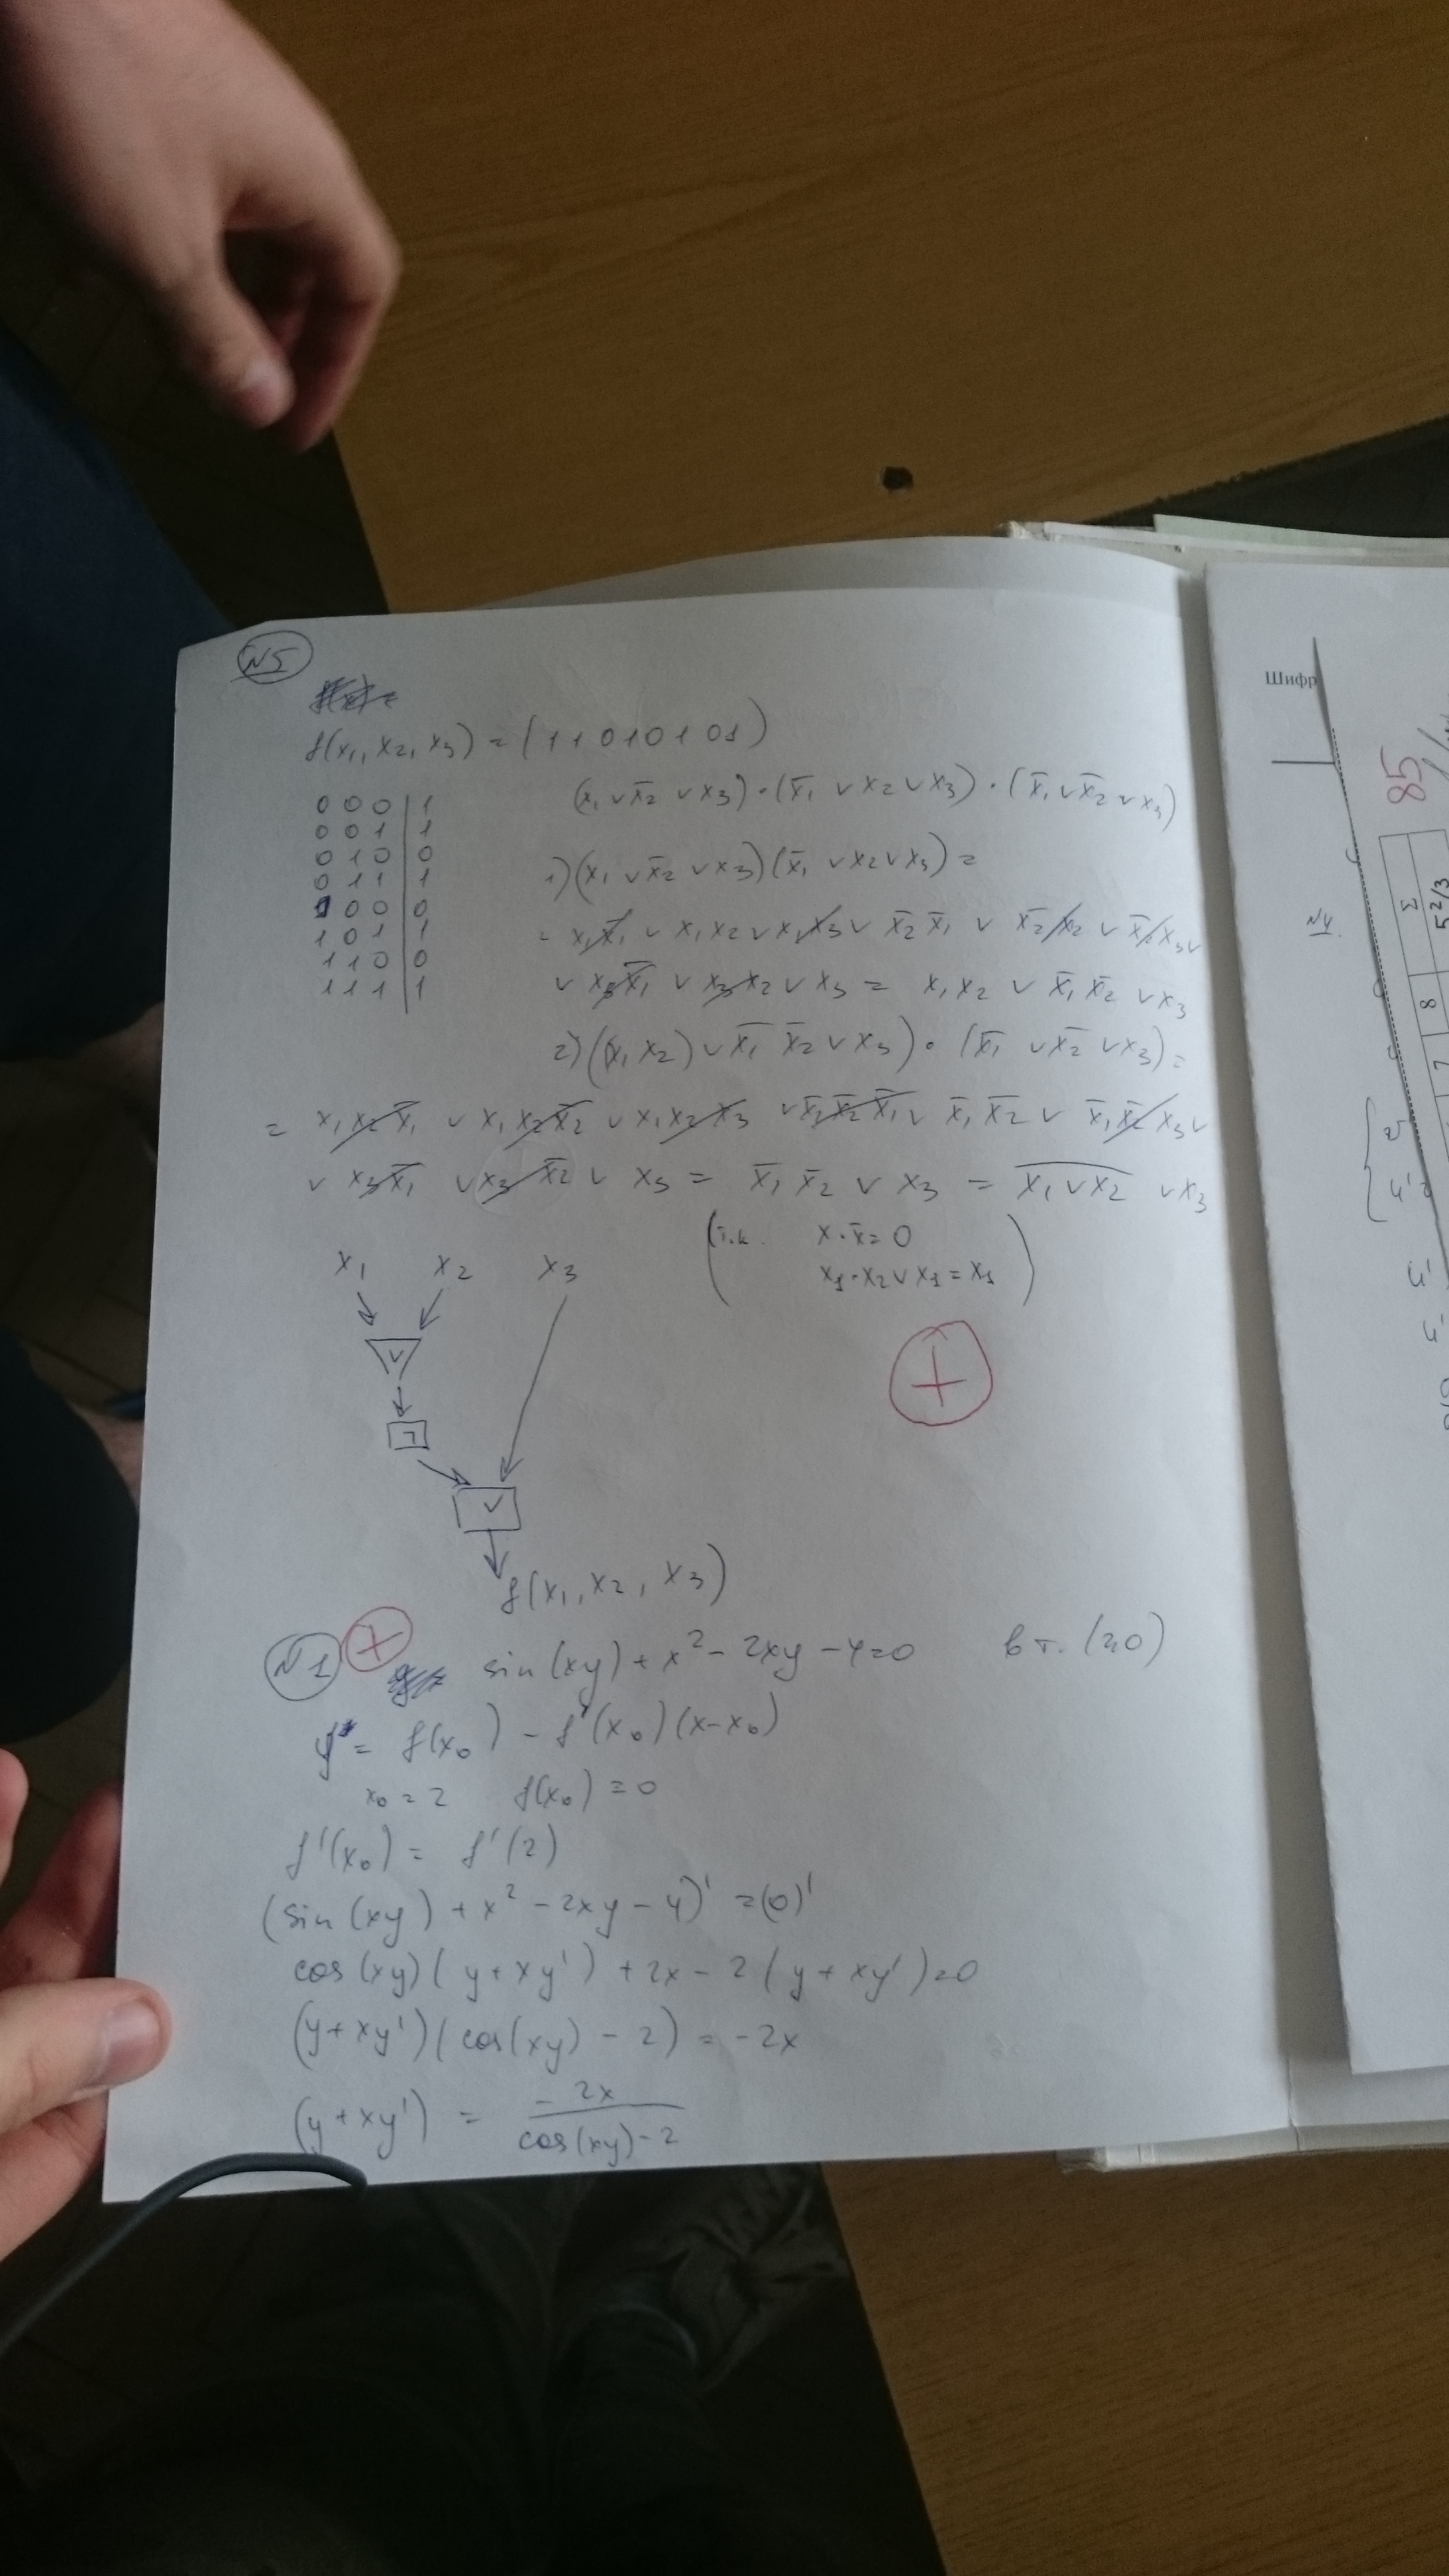 N5
f(x₁, x₂, x₃) = (11010101)
0 0 0 | 1
0 0 1 | 1
0 1 0 | 0
0 1 1 | 1
1 0 0 | 0
1 0 1 | 1
1 1 0 | 0
1 1 1 | 1
(x₁ ∨ x̄₂ ∨ x₃) · (x̄₁ ∨ x₂ ∨ x₃) · (x̄₁ ∨ x̄₂ ∨ x₃)
1) (x₁ ∨ x̄₂ ∨ x₃)(x̄₁ ∨ x₂ ∨ x₃) =
= x₁x̄₁ ∨ x₁x₂ ∨ x₁x₃ ∨ x̄₂x̄₁ ∨ x̄₂x₂ ∨ x̄₂x₃ ∨
∨ x₃x̄₁ ∨ x₃x₂ ∨ x₃ = x₁x₂ ∨ x̄₁x̄₂ ∨ x₃
2) (x₁x₂) ∨ x̄₁ x̄₂ ∨ x₃) · (x̄₁ ∨ x̄₂ ∨ x₃) =
= x₁x₂x̄₁ ∨ x₁x₂x̄₂ ∨ x₁x₂x₃ ∨ x̄₁x̄₂x̄₁ ∨ x̄₁x̄₂ ∨ x̄₁x̄₂x₃ ∨
∨ x₃x̄₁ ∨ x₃x̄₂ ∨ x₃ = x̄₁ x̄₂ ∨ x₃ = \overline{x₁ ∨ x₂} ∨ x₃
(т.к. x·x̄ = 0
x₁·x₂ ∨ x₁ = x₁)
x₁ x₂ x₃
∨
¬
∨
f(x₁, x₂, x₃)
+
N1 + sin(xy) + x² - 2xy - 4 = 0 в т. (2,0)
y = f(x₀) - f'(x₀)(x-x₀)
x₀ = 2 f(x₀) = 0
f'(x₀) = f'(2)
(sin(xy) + x² - 2xy - 4)' = (0)'
cos(xy)(y + xy') + 2x - 2(y + xy') = 0
(y + xy')(cos(xy) - 2) = -2x
(y + xy') = -2x / (cos(xy) - 2)
Шифр
85
N4.
Σ
5 2/3
8
7